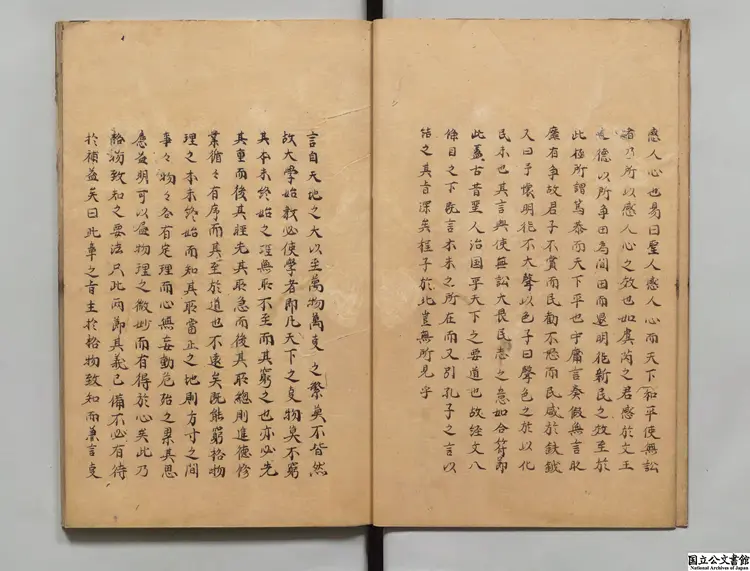 感人心也易曰聖人感人心而天下和平使無訟
者乃所以感人心之效也如虞芮之君感於文王
之德以所爭田為間田而還明德新民之效至於
此極所謂篤恭而天下平也中庸言奏假無言時
靡有爭故君子不賞而民勸不怒而民威於鈇鉞
又曰予懷明德不大聲以色子曰聲色之於以化
民末也其言與使無訟大畏民志之意如合符節
此蓋古昔聖人治国平天下之要道也故經文八
條目之下既言本末之所在而又引孔子之言以
結之其旨深矣程子於此豈無所見乎
言自天地之大以至萬物萬事之繁莫不皆然
故大學始教必使學者即凡天下之事物莫不窮
其本末終始之理無所不至而其窮之也亦必先
其重而後其輕先其所急而後其所緩則進德修
業循々有序而其至於道也不遠矣既能窮格物
理之本末終始而知其所當止之地則方寸之間
事々物々各有定理而心無妄動危殆之累其思
慮益明可以盡物理之微妙而有得於心矣此乃
格物致知之要法只此两節其義已備不必有待
於補益矣曰此章之旨主於格物致知而兼言事
国立公文書館
National Archives of Japan